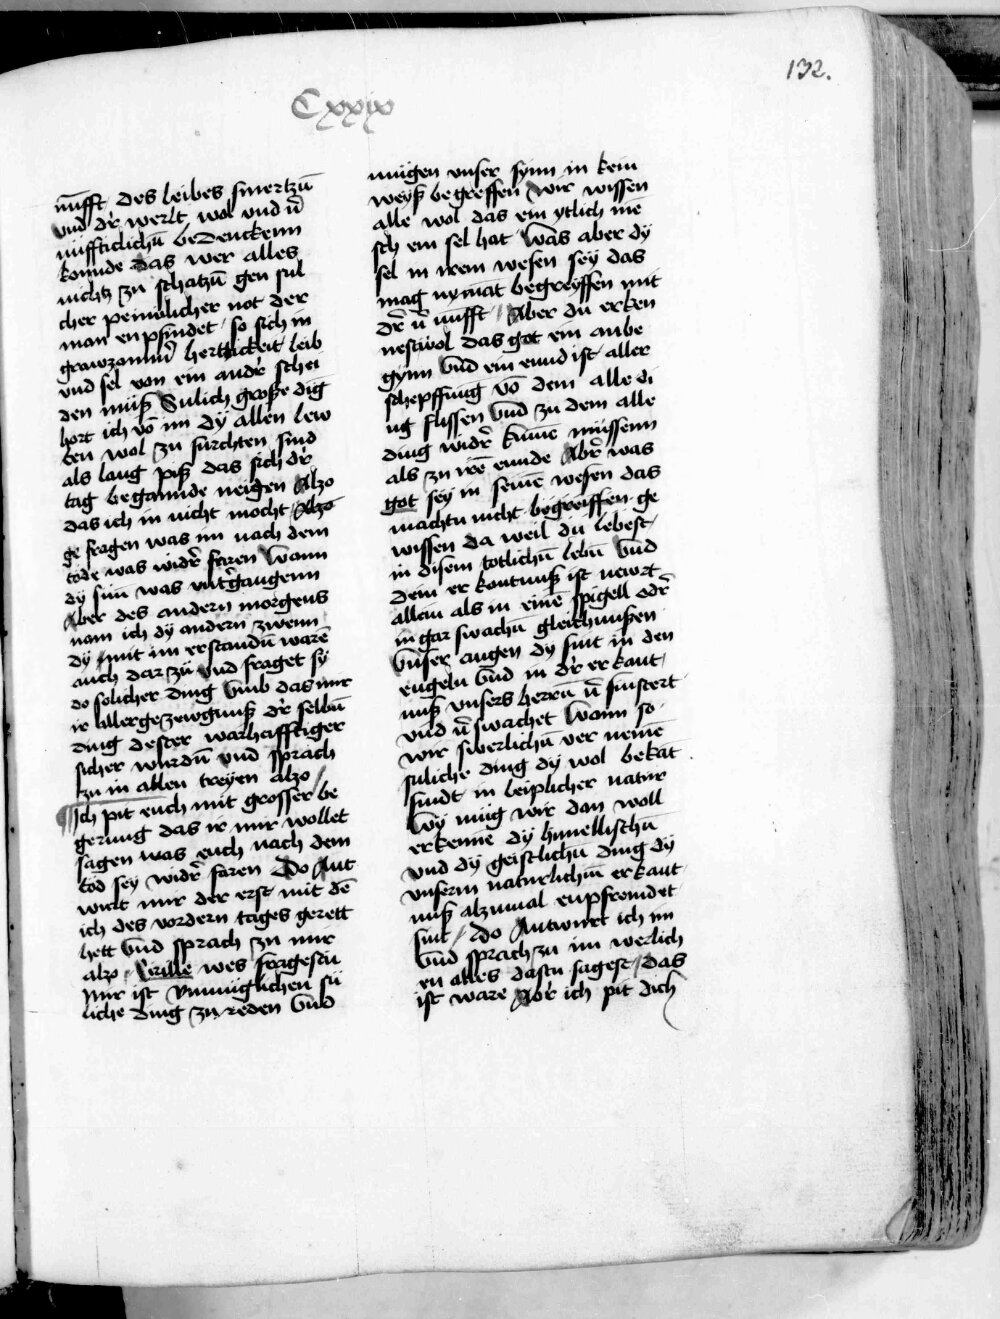 132.
Cxxix
nūfft des leibes smertzū
vnd dr̄ werlt wol vnd ṽ
nuffticlichū bedenckenn
konnde das wer alles
nichtz zu schatzūn gen sul
cher peinlicher not der
man enpfindet so sich in
grawzamm̄ herttickeit leib
vnd sel von ein andr̄ schei
den müß Sulich große dig
hort ich vō im dy allen lew
ten wol zu furchten sind
als lang piß das sich dr̄
tag begannde neigen Alzo
das ich in nicht mocht Alzo
ge fragen was im nach dem
tode was widr̄ faren Wann
dy sun was vntr̄gangenn
Aber des andern morgens
nam ich dy andern zwenn
dy mit im erstandū warē
auch dar zū vnd fraget sy
do solicher ding vmb das mir
ir aller gezewgnuß dr̄ selbū
ding dester warhafftiger
sicher wurdū vnd sprach
zu in allen treyen alzo
Ich pit euch mit grosser be
gerung das ir mir wollet
sagen was euch nach dem
tod sey widr̄ faren Do Ant
wurt mir der erst mit dē
ich des vordern tages gerett
hett vnd sprach zu mir
alzo Cirille wes fragestu
mir ist vnmuglichen sü
liche ding zu reden vnd
mügen vnser synn in kein
weyß begreffen wir wissen
alle wol das ein ytlich mē
sch ein sel hat Was aber dy
sel in irem wesen sey das
mag nymāt begreyffen mit
dr̄ ṽ nufft Aber du erken
nest wol das got ein anbe
gynn vnd ein ennd ist aller
schepffung vō dem alle di
ng flissen vnd zu dem alle
ding widr̄ kumē müssenn
als zu irē ennde Abr̄ was
got sey in seinē wesen das
machtu nicht begreiffen ge
wissen da weil du lebest
in disem totlichū lebū vnd
dem er kantnuß ist newrt
allein als in einē spigell odr̄
in gar swachū gleichnußen
vnser augen dy sint in den
engeln vnd in dr̄ er kant
nuß vnsers herrn ṽ finstert
vnd ṽ swachet Wann so
wir swerlichū ver nemē
suliche ding dy wol bekāt
sindt in leiplicher natur
Wy müg wir dan woll
erkennē dy himellischū
vnd dy geistlichū ding dy
vnserm naturlichm̄ erkant
nuß alzumal enpfremdet
sint Do Antwurt ich im
vnd sprach zu im werlich
en alles dastu sagest das
ist ware Abr̄ ich pit dich